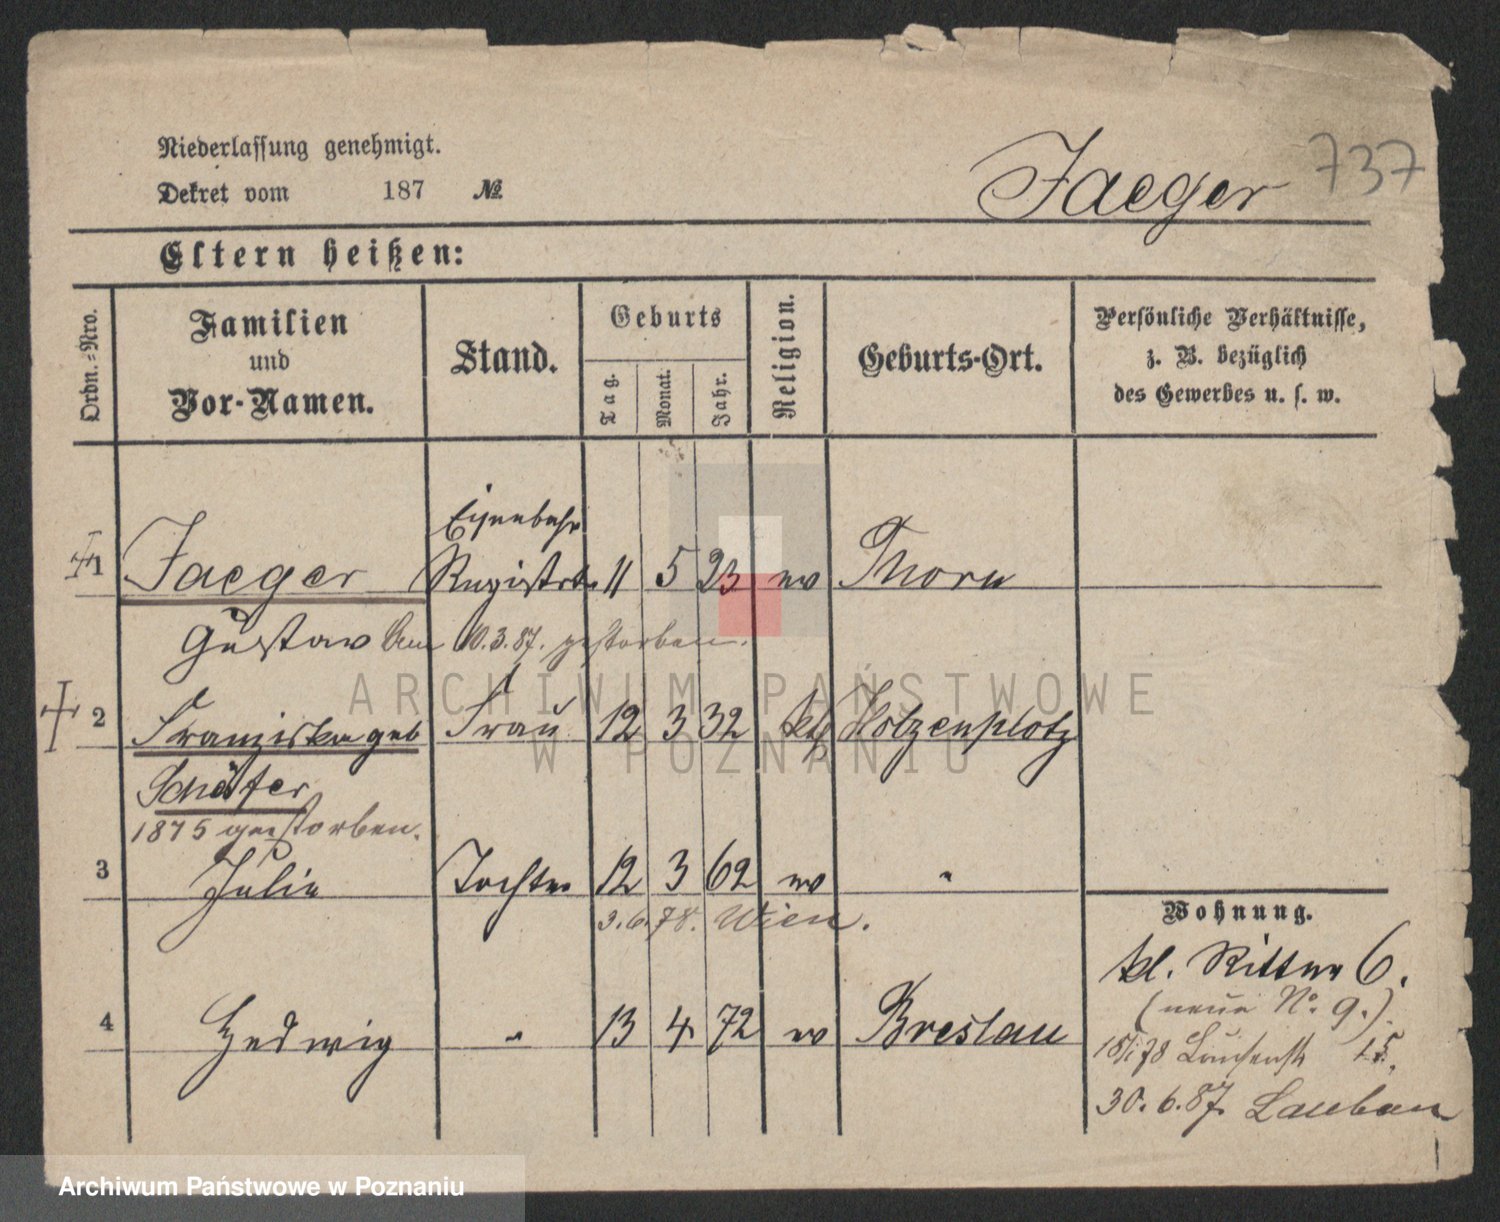 Niederlassung genehmigt.
Dekret vom 187 №
Jaeger 737
Eltern heißen:
Ordn.=Nro.
Familien
und
Vor-Namen.
Stand.
Geburts
Tag.
Monat.
Jahr.
Religion.
Geburts-Ort.
Persönliche Verhältnisse,
z. B. bezüglich
des Gewerbes u. s. w.
Eisenbahn
1 Jaeger Registrtr 11 5 23 ev Thorn
Gustav Am 10.3.87. gestorben.
2 Franziska geb Frau 12 3 32 kth Hotzenplotz
Schäfer
1875 gestorben.
3 Julie Tochter 12 3 62 ev "
3.6.78. Wien.
4 Hedwig " 13 4 72 ev Breslau
Wohnung.
kl. Ritter 6.
(neue No. 9.)
18/1 78 Louisenstr 15.
30.6.87. Lauban
ARCHIWUM PAŃSTWOWE
W POZNANIU
Archiwum Państwowe w Poznaniu